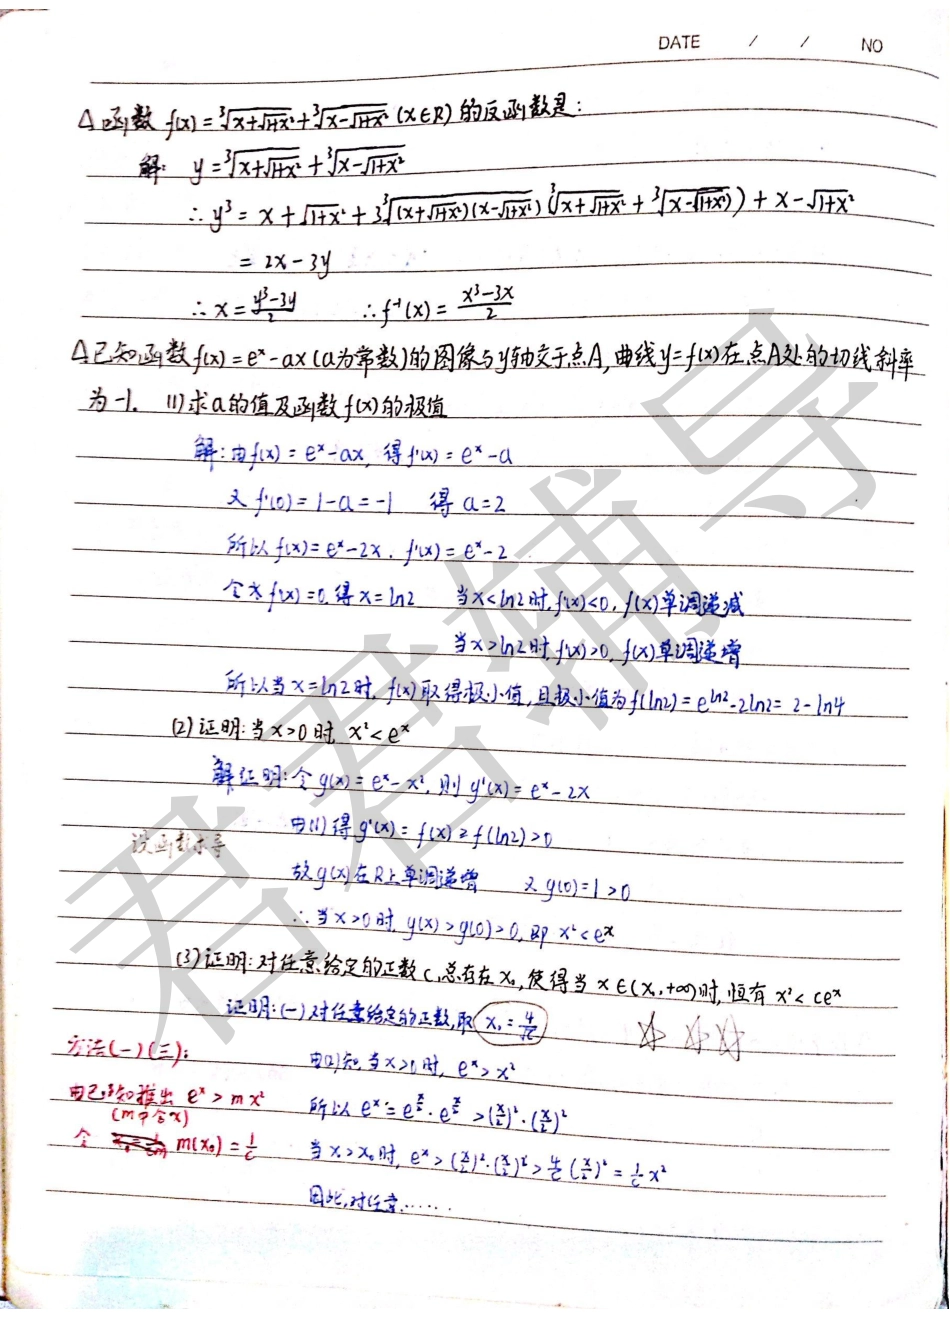 DATE / / NO
△函数 f(x) = ∛(x+√(1+x²)) + ∛(x-√(1+x²)) (x∈R) 的反函数是：
解: y = ∛(x+√(1+x²)) + ∛(x-√(1+x²))
∴ y³ = x + √(1+x²) + 3∛((x+√(1+x²))(x-√(1+x²))) (∛(x+√(1+x²)) + ∛(x-√(1+x²))) + x - √(1+x²)
= 2x - 3y
∴ x = (y³-3y)/2 ∴ f⁻¹(x) = (x³-3x)/2
△已知函数 f(x) = eˣ - ax (a为常数)的图像与y轴交于点A, 曲线y=f(x)在点A处的切线斜率
为-1. (1)求a的值及函数f(x)的极值
解: 由f(x) = eˣ-ax, 得 f'(x) = eˣ-a
又 f'(0) = 1-a = -1 得 a=2
所以 f(x) = eˣ-2x. f'(x) = eˣ-2
令 f'(x) = 0, 得 x = ln2 当x<ln2时, f'(x)<0, f(x)单调递减
当x>ln2时, f'(x)>0, f(x)单调递增
所以当x=ln2时, f(x)取得极小值, 且极小值为f(ln2) = e^ln2 - 2ln2 = 2-ln4
(2)证明: 当x>0时 x²<eˣ
证明: 令 g(x) = eˣ-x², 则 g'(x) = eˣ-2x
由(1)得 g'(x) = f(x) ≥ f(ln2) > 0
设函数求导
故g(x)在R上单调递增 又 g(0)=1>0
∴当x>0时, g(x)>g(0)>0, 即 x²<eˣ
(3)证明: 对任意给定的正数c, 总存在x₀, 使得当 x∈(x₀,+∞)时, 恒有 x²<ceˣ
证明: (一) 对任意给定的正数, 取 x₀ = 4/√c
方法(一)(三):
由(2)知, 当x>0时, eˣ>x²
由已知推出 eˣ > mx²
(m中含x)
所以 eˣ = e^(x/2)·e^(x/2) > (x/2)²·(x/2)²
令 m(x₀) = 1/c
当x>x₀时, eˣ > (x/2)²·(x/2)² > 4/c (x/2)² = 1/c x²
因此, 对任意……
君君辅导